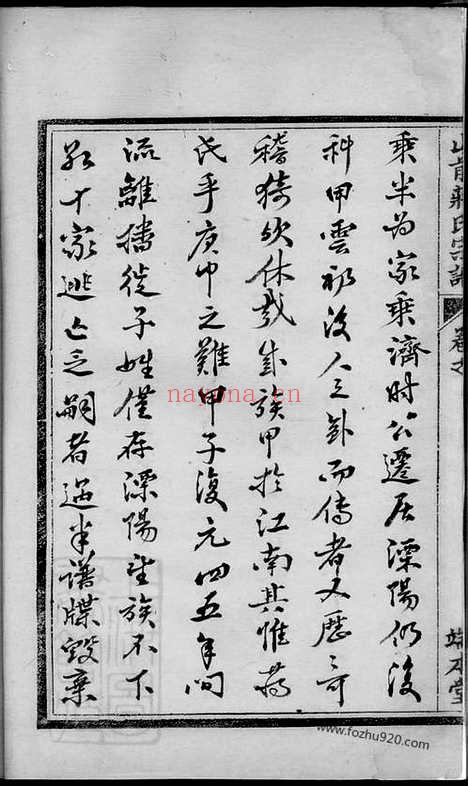 山前蒋氏宗譜 卷之 端本堂
乘半為家乘濟時公遷居溧陽仍後
科甲雲礽後人之卦而傳者又歷可
稽猗欤休哉望族甲於江南其惟蒋
氏乎庚申之難甲子復元四五年间
流離播徙子姓僅存溧陽望族不下
數十家逃亡乏嗣者过半譜牒毀棄
nayona.cn
www.fozhu920.com